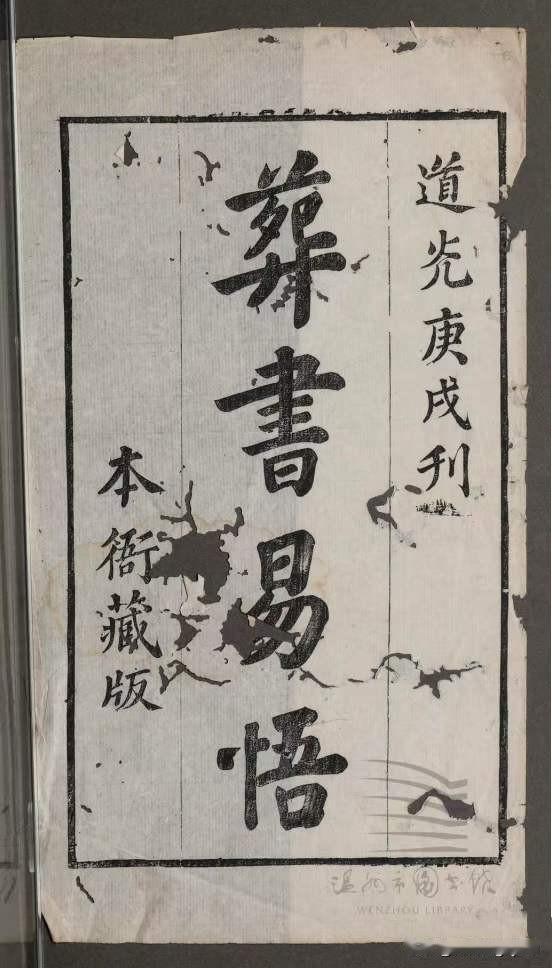 道光庚戌刊
葬書易悟
本衙藏版
温州市图书馆
WENZHOU LIBRARY